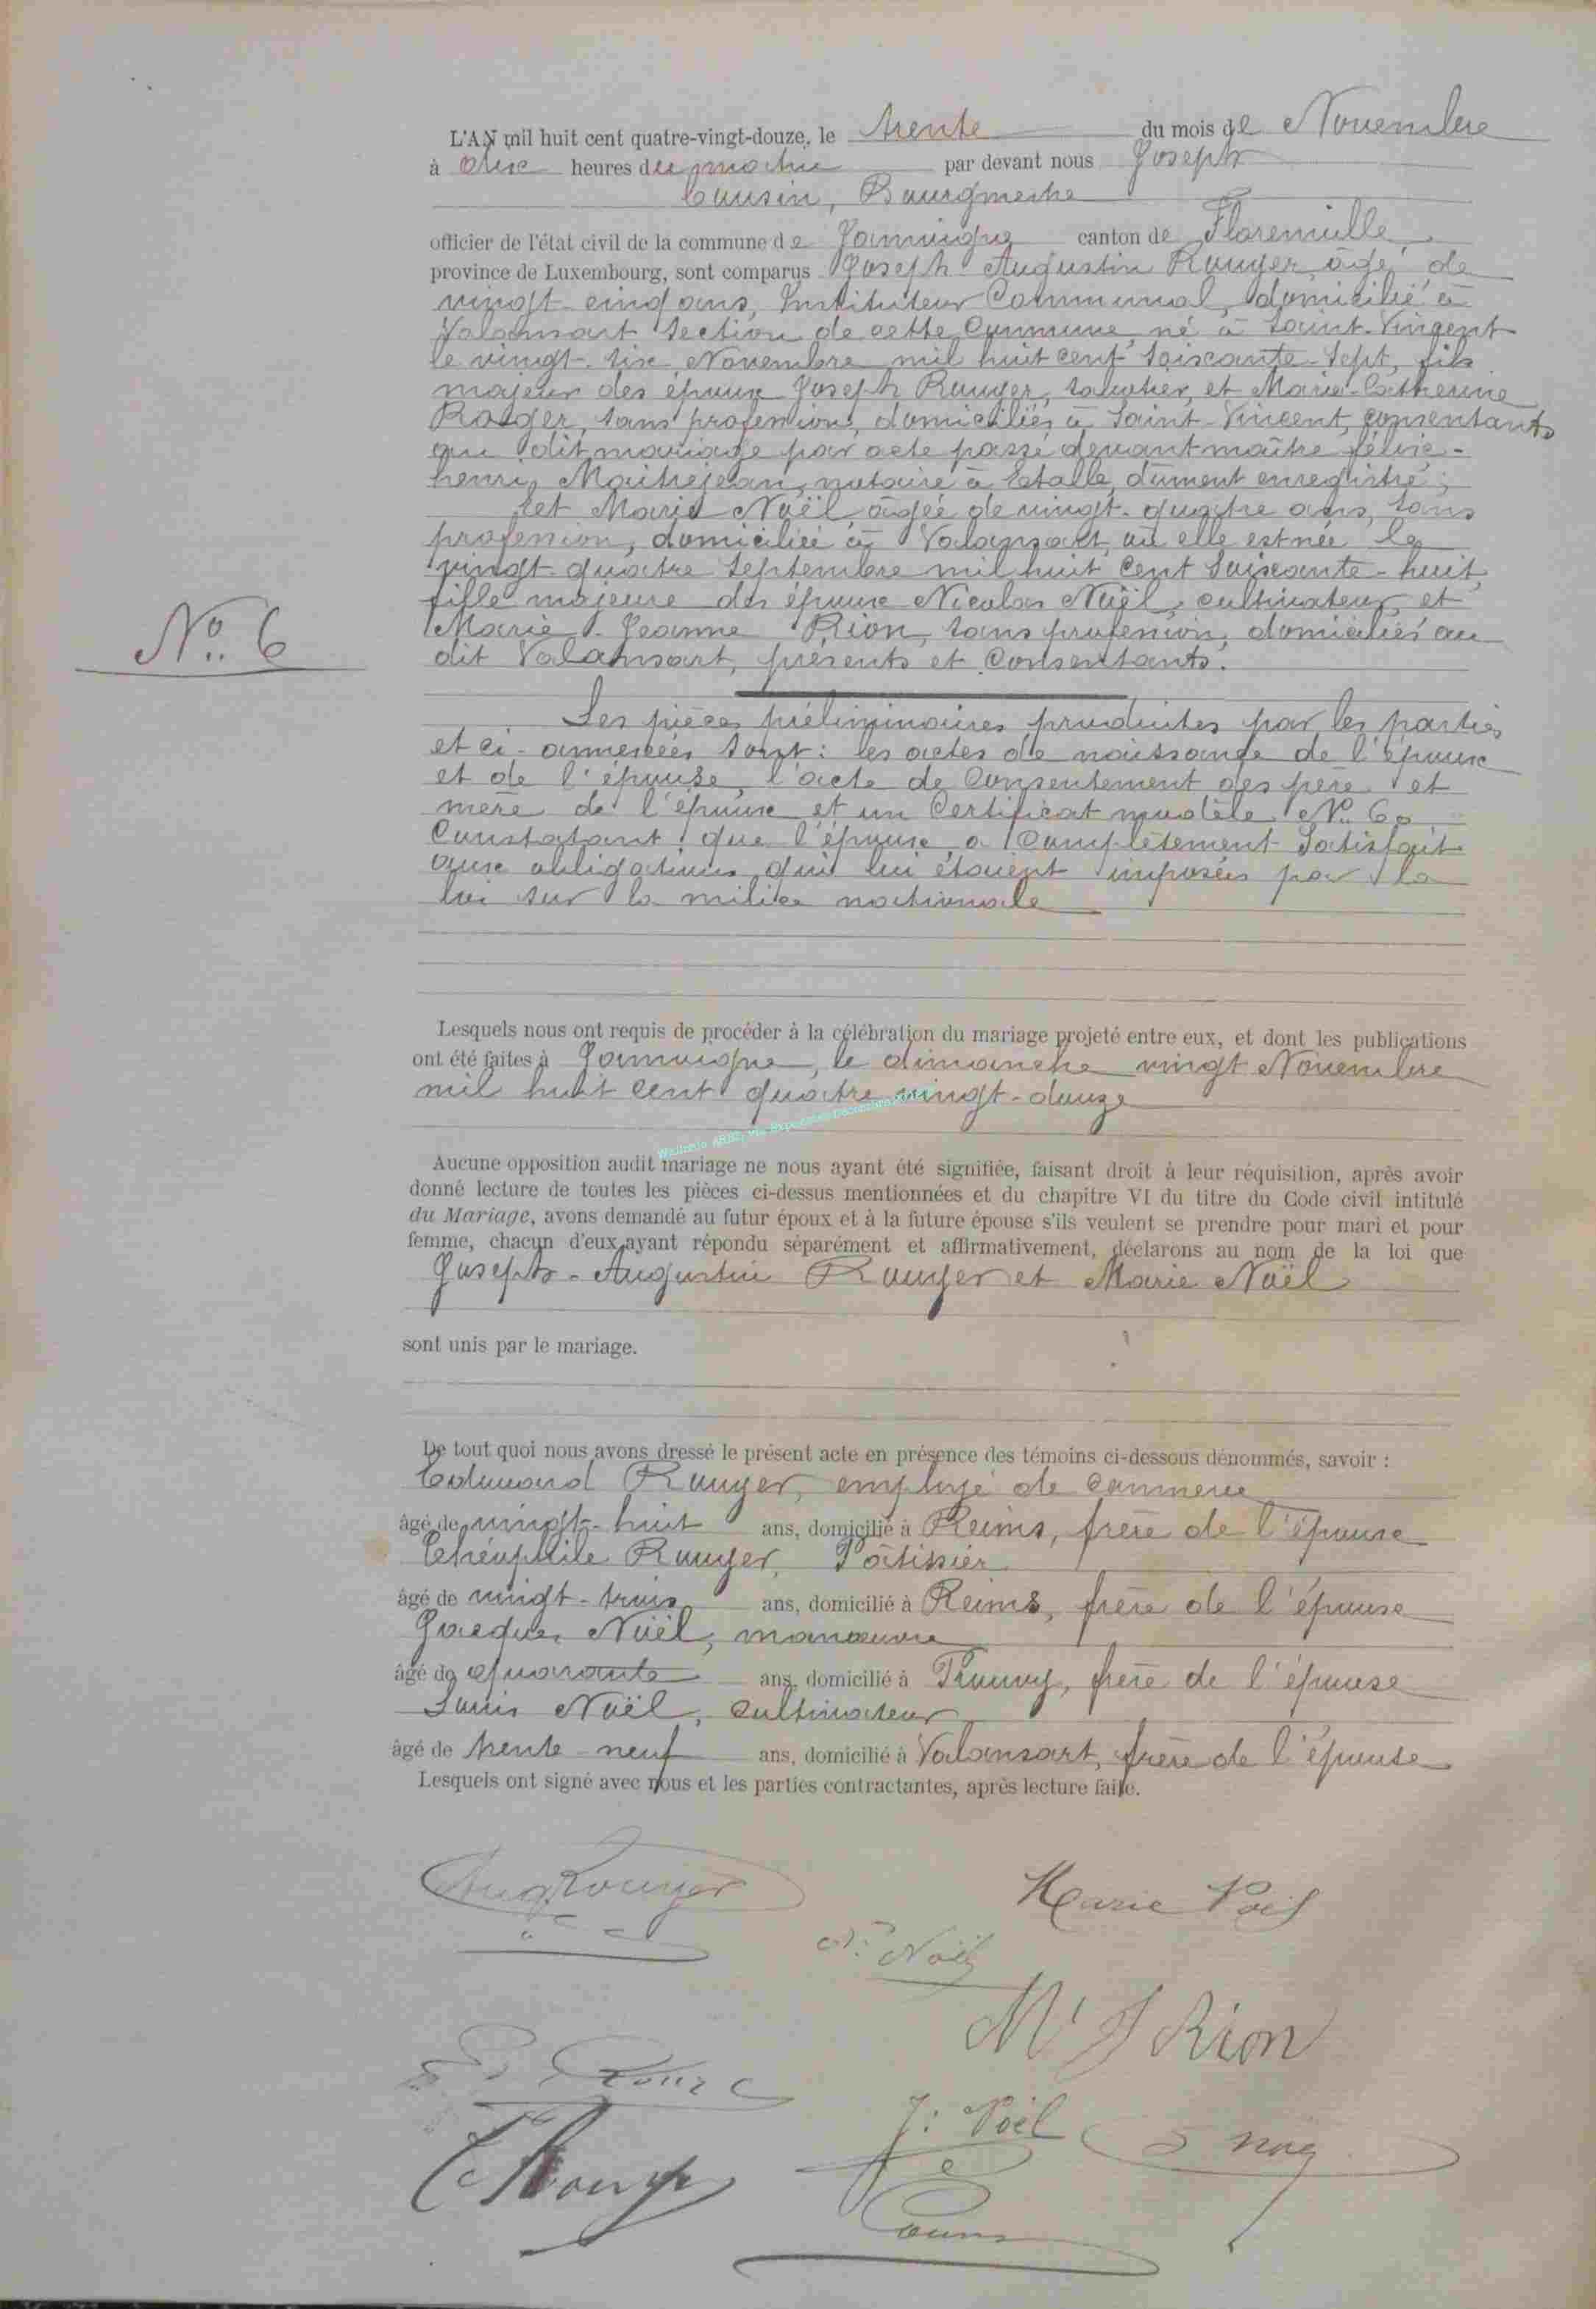 L'AN mil huit cent quatre-vingt-douze, le trente du mois de Novembre
à dix heures du matin par devant nous Joseph
Cousin, Bourgmestre
officier de l'état civil de la commune de Jamoigne canton de Florenville
province de Luxembourg, sont comparus Joseph Augustin Rouyer, âgé de
vingt-cinq ans, Instituteur Communal, domicilié à
Valansart section de cette Commune, né à Saint-Vincent
le vingt-six Novembre mil huit cent soixante-sept, fils
majeur des époux Joseph Rouyer, sabotier, et Marie-Catherine
Roger, sans profession, domiciliés à Saint-Vincent, consentants
au dit mariage par acte passé devant maître Félix-
henri, Maitrejean, notaire à Etalle, dûment enregistré;
et Marie Noël, âgée de vingt-quatre ans, sans
profession, domiciliée à Valansart, où elle est née le
vingt-quatre Septembre mil huit cent soixante-huit,
fille majeure des époux Nicolas Noël, cultivateur, et
N° 6
Marie-Jeanne Rion, sans profession, domiciliés au
dit Valansart, présents et consentants.
Les pièces préliminaires produites par les parties
et ci-annexées sont: les actes de naissance de l'époux
et de l'épouse, l'acte de consentement des père et
mère de l'époux et un Certificat modèle N° 60
Constatant que l'époux a complètement satisfait
aux obligations qui lui étaient imposées par la
loi sur la milice nationale
Lesquels nous ont requis de procéder à la célébration du mariage projeté entre eux, et dont les publications
ont été faites à Jamoigne, le dimanche vingt Novembre
mil huit cent quatre vingt-douze
Aucune opposition audit mariage ne nous ayant été signifiée, faisant droit à leur réquisition, après avoir
donné lecture de toutes les pièces ci-dessus mentionnées et du chapitre VI du titre du Code civil intitulé
du Mariage, avons demandé au futur époux et à la future épouse s'ils veulent se prendre pour mari et pour
femme, chacun d'eux ayant répondu séparément et affirmativement, déclarons au nom de la loi que
Joseph-Augustin Rouyer et Marie Noël
sont unis par le mariage.
De tout quoi nous avons dressé le présent acte en présence des témoins ci-dessous dénommés, savoir :
Edmond Rouyer, employé de commerce
âgé de vingt-huit ans, domicilié à Reims, frère de l'époux
Théophile Rouyer, Pâtissier
âgé de vingt-trois ans, domicilié à Reims, frère de l'époux
Jacques Noël, manoeuvre
âgé de quarante ans, domicilié à Prouvy, frère de l'épouse
Louis Noël, cultivateur
âgé de trente-neuf ans, domicilié à Valansart, frère de l'épouse
Lesquels ont signé avec nous et les parties contractantes, après lecture faite.
Aug Rouyer
Marie Noël
N: Noël
M J Rion
J: Noël